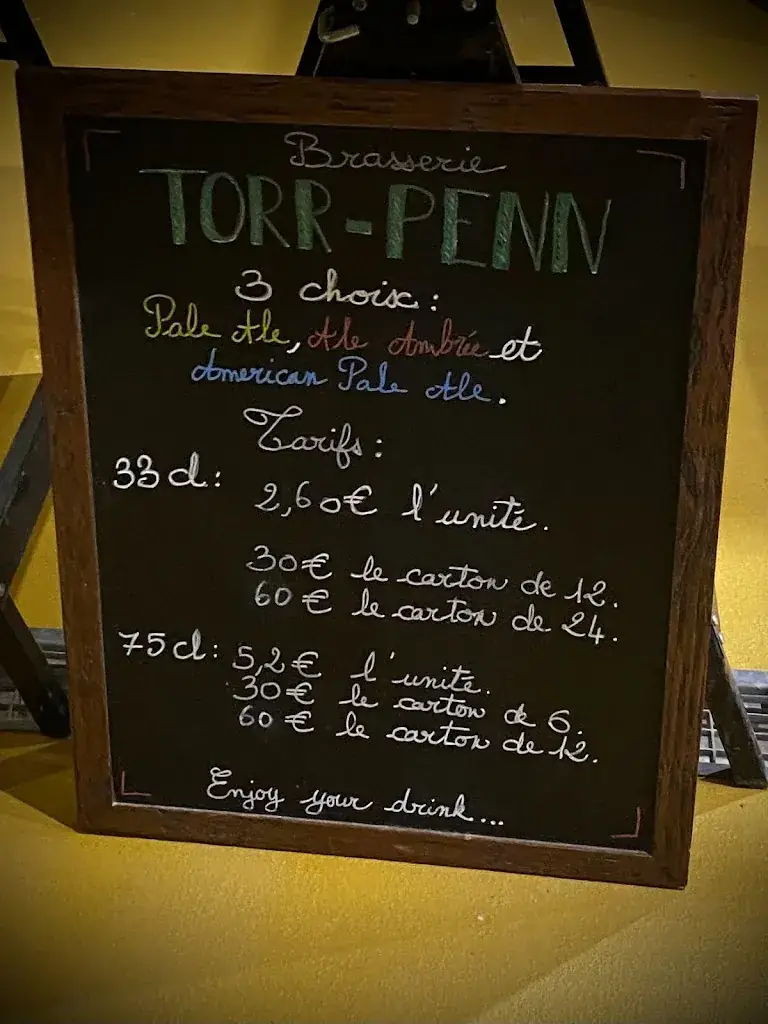 Brasserie
TORR-PENN
3 choix :
Pale Ale, Ale Ambrée et
American Pale Ale.
Tarifs :
33 cl : 2,60€ l'unité.
30€ le carton de 12.
60€ le carton de 24.
75 cl : 5,2€ l'unité.
30€ le carton de 6.
60€ le carton de 12.
Enjoy your drink...